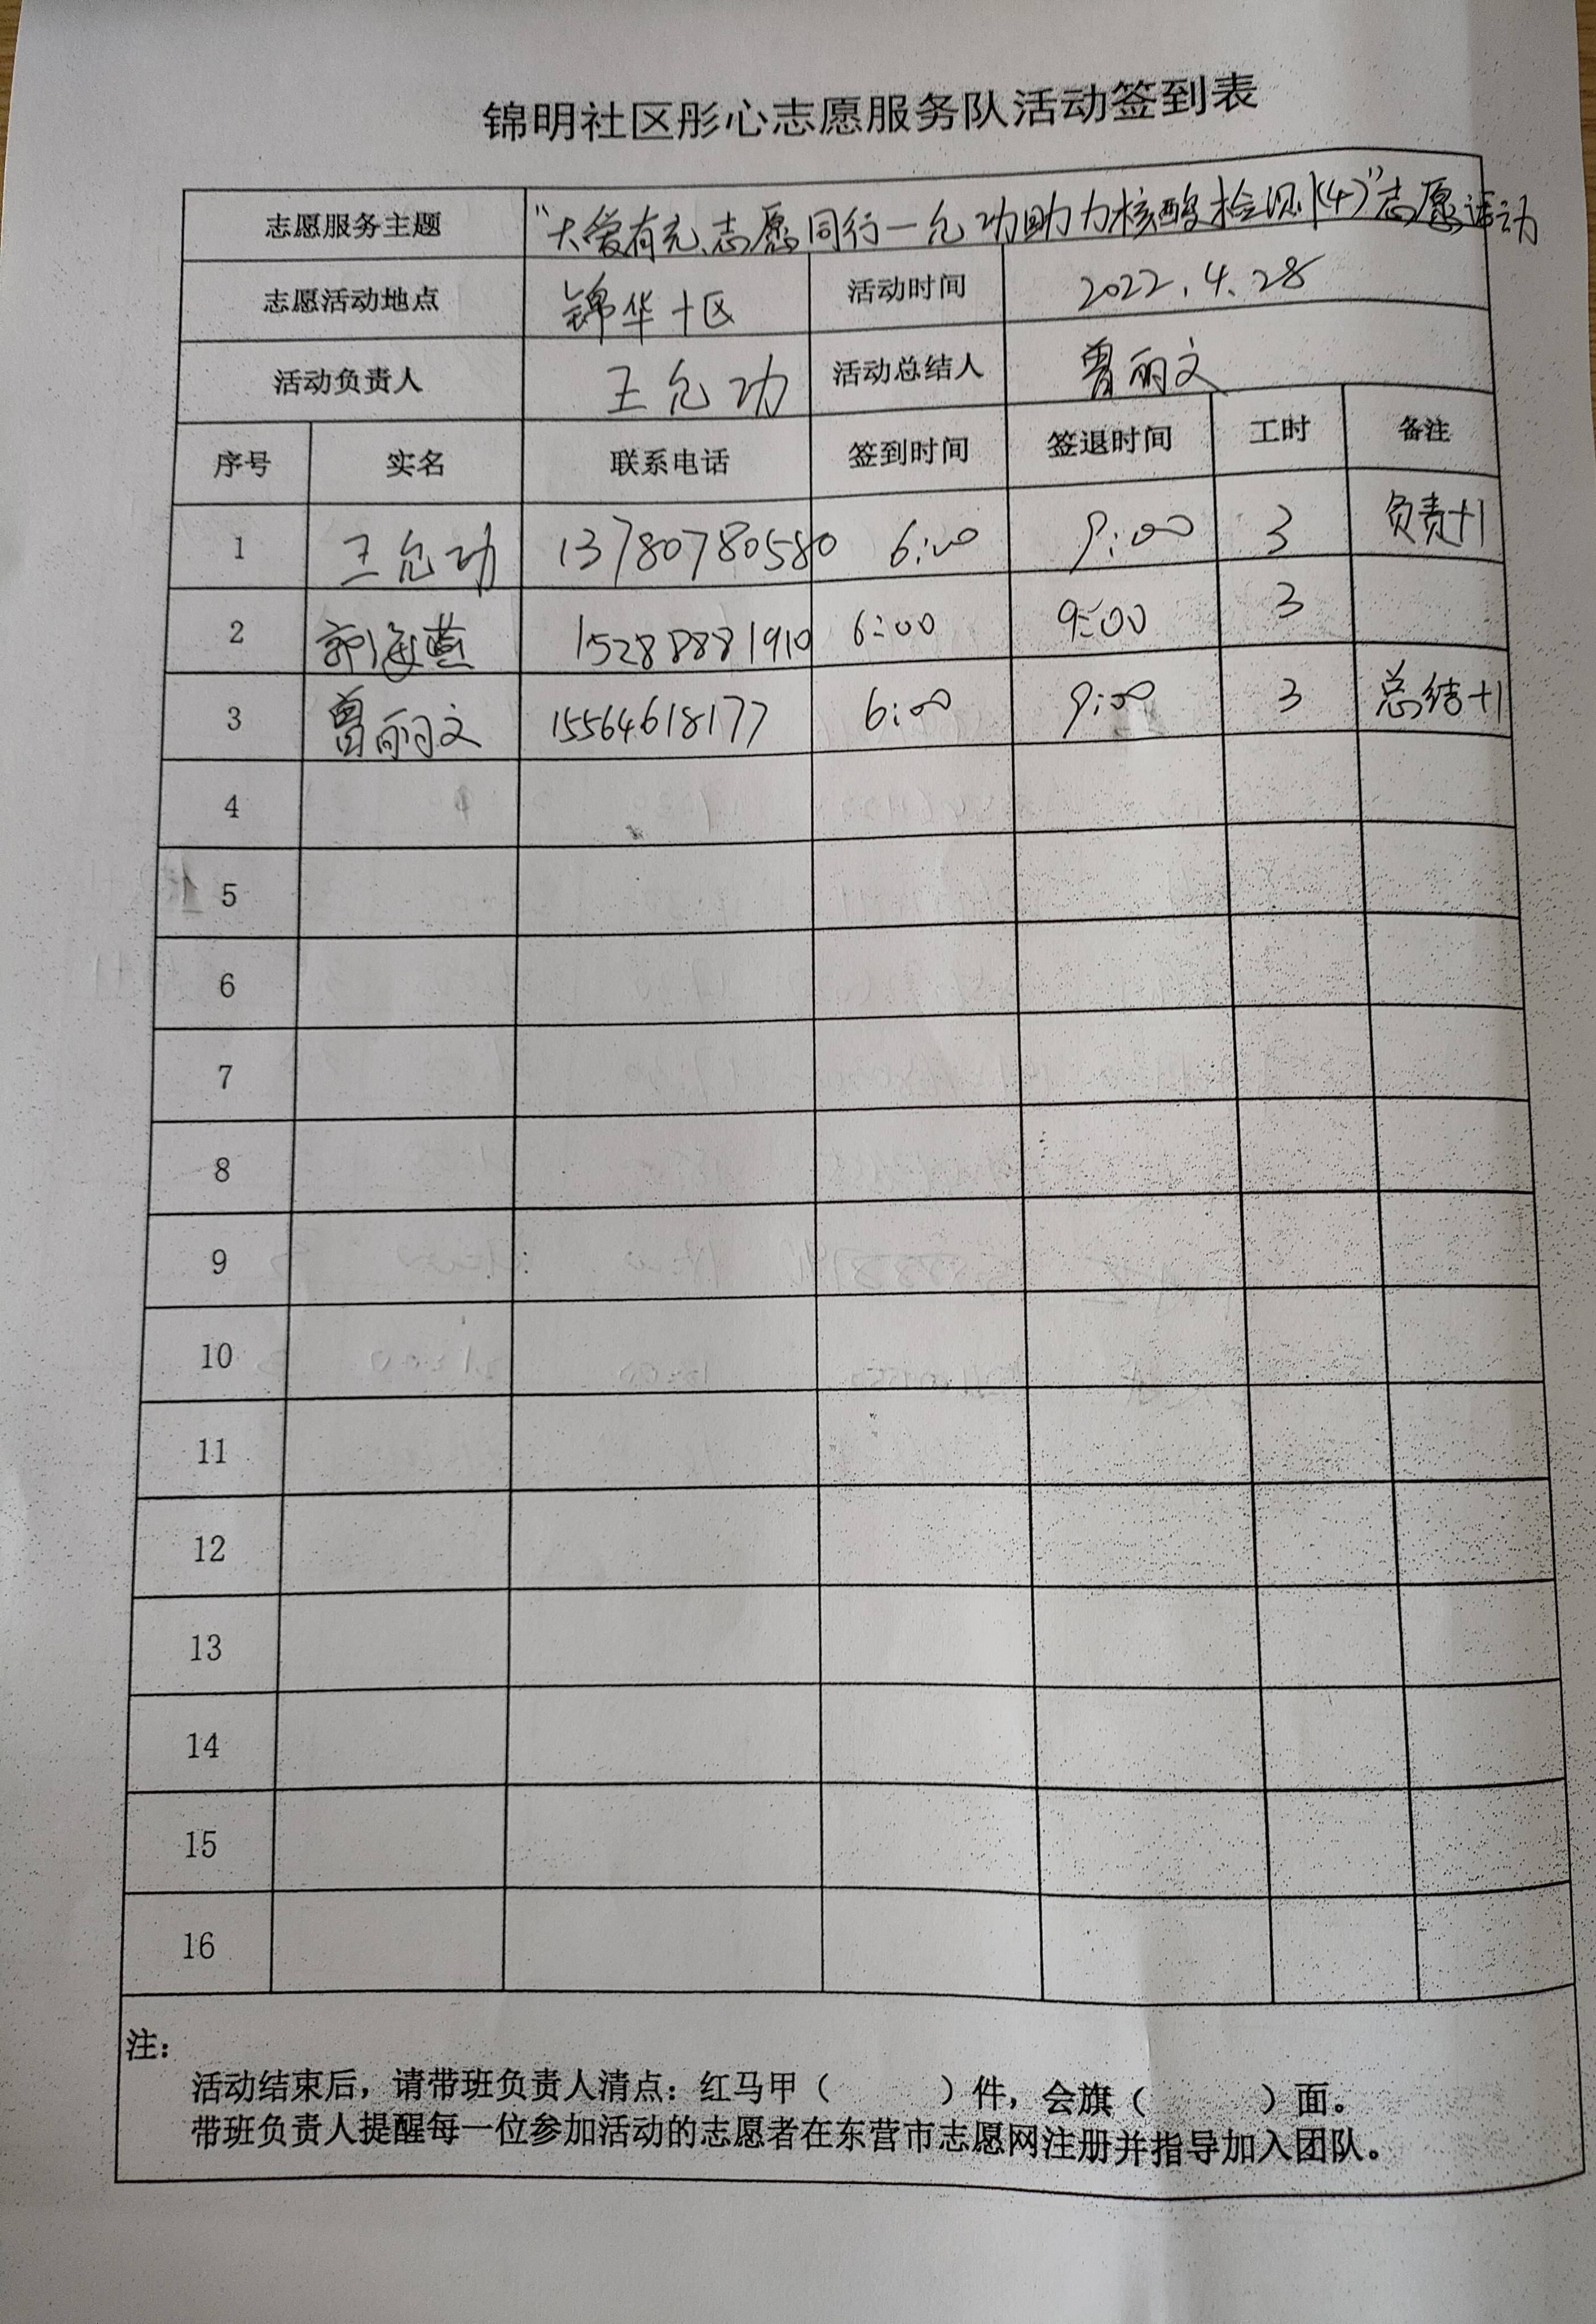 锦明社区彤心志愿服务队活动签到表
志愿服务主题 “大爱有充、志愿同行一允功助力核酸检测(4)”志愿活动
志愿活动地点 锦华十区 活动时间 2022.4.28
活动负责人 王允功 活动总结人 曾丽文
序号 实名 联系电话 签到时间 签退时间 工时 备注
1 王允功 13780780580 6:00 9:00 3 负责+1
2 郭海 15288881910 6:00 9:00 3
3 曾丽文 15564618177 6:00 9:00 3 总结+1
4
5
6
7
8
9
10
11
12
13
14
15
16
注：
活动结束后，请带班负责人清点：红马甲（ ）件，会旗（ ）面。
带班负责人提醒每一位参加活动的志愿者在东营市志愿网注册并指导加入团队。